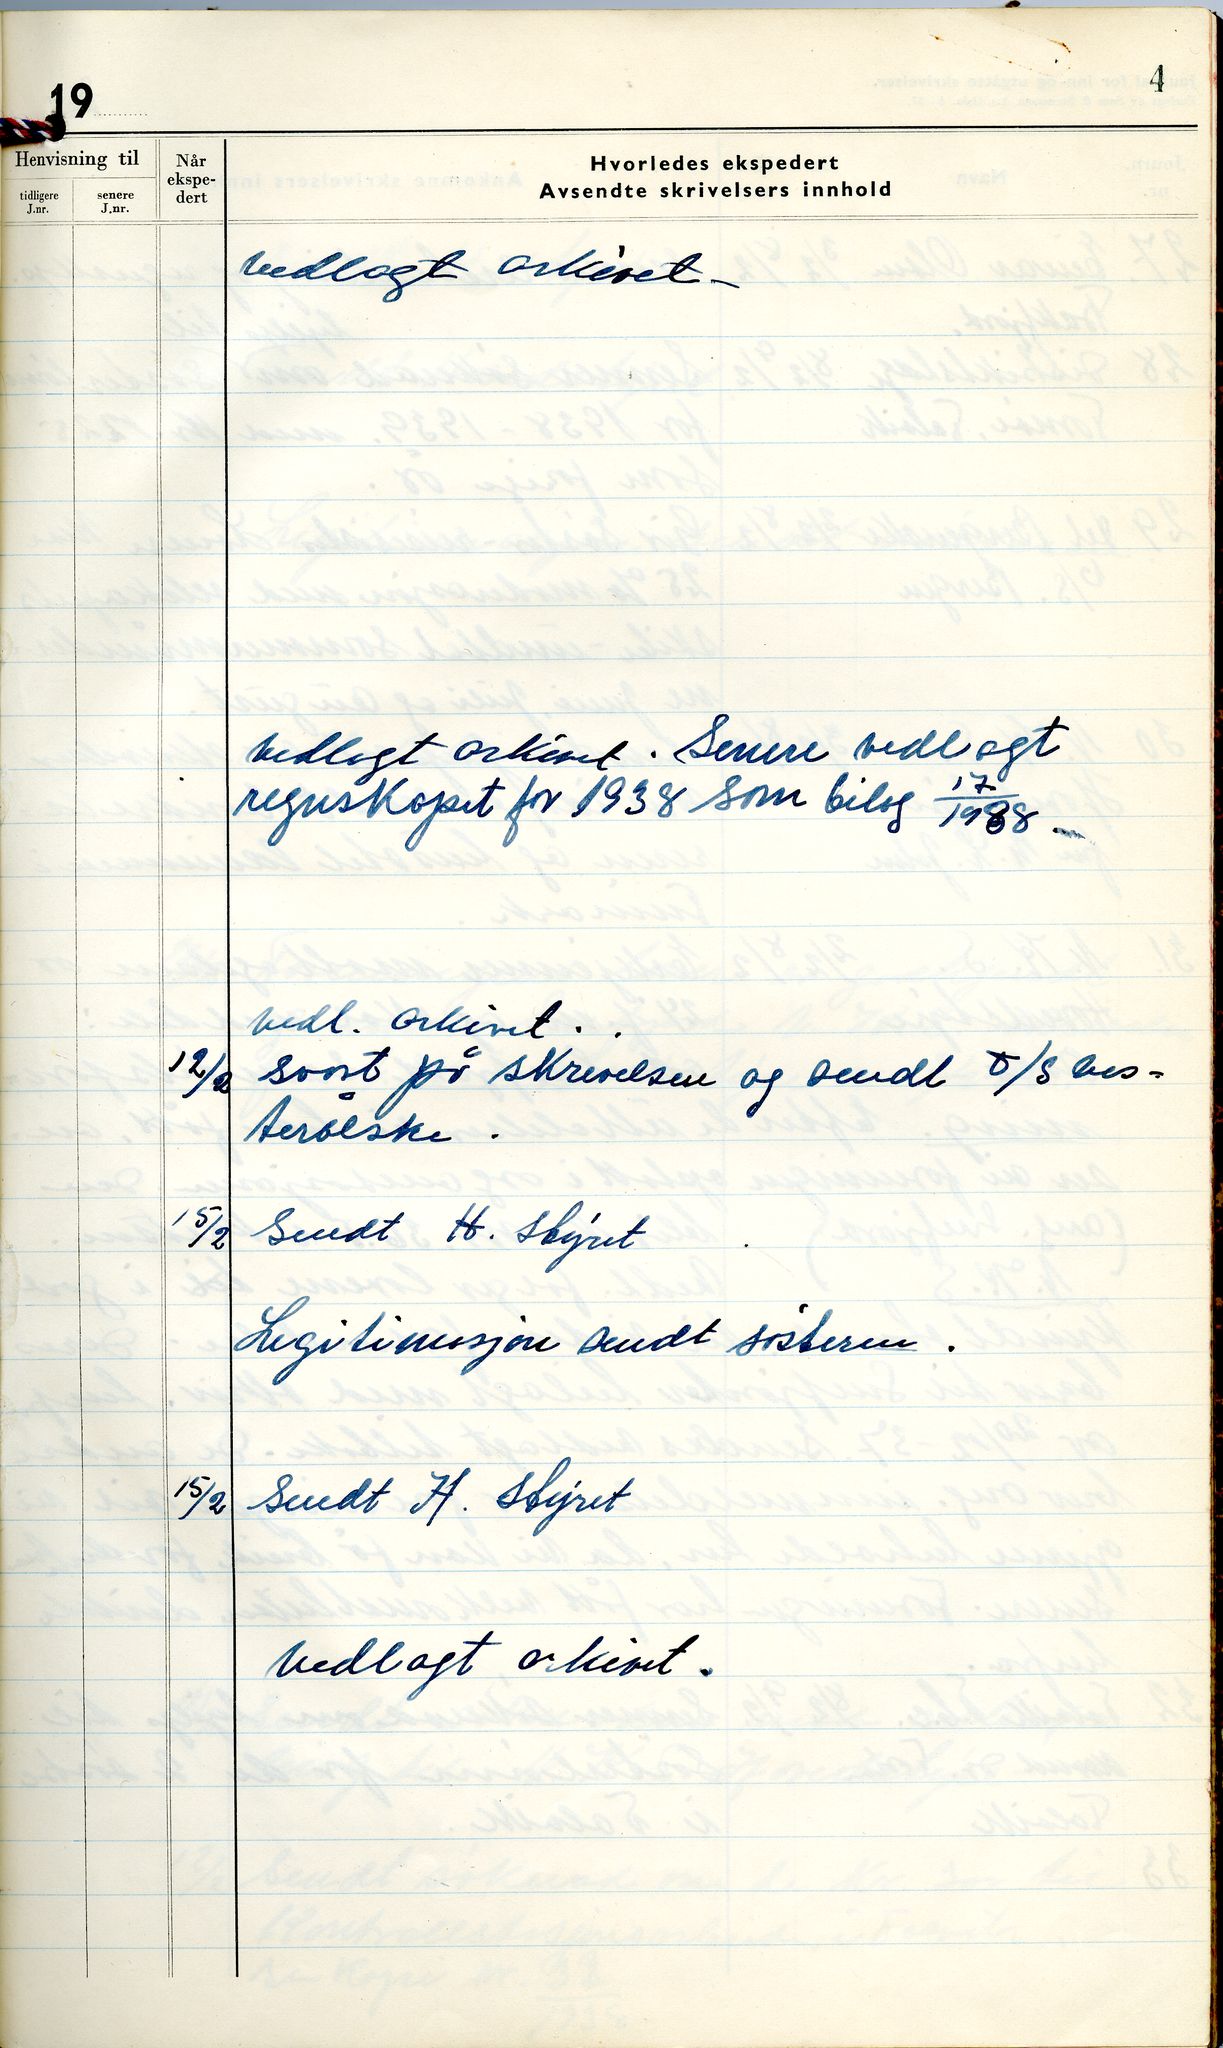 4
19
Henvisning til
tidligere J.nr.
senere J.nr.
Når ekspe-dert
Hvorledes ekspedert
Avsendte skrivelsers innhold
Vedlagt arkivet -
Vedlagt arkivet. Senere vedlagt
regnskapet for 1938 som bilag 17/1938 -
Vedl. arkivet.
12/2 Svart på skrivelsen og sendt D/S Ves-
terålske.
15/2 Sendt H. Styret
Legitimasjon sendt søsteren.
15/2 Sendt H. Styret
Vedlagt arkivet.